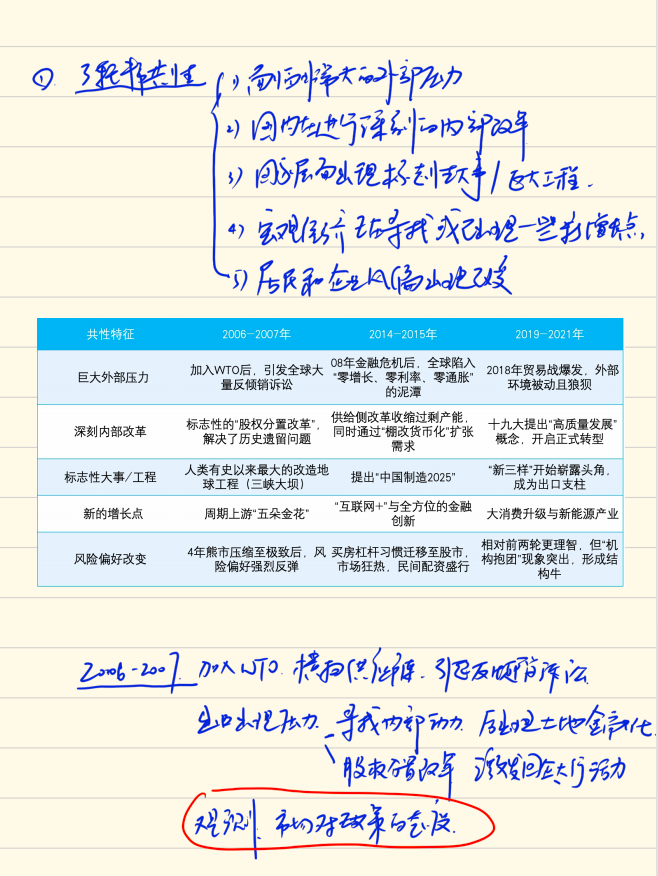 ① 3轮牛市共性
1) 面临非常大的外部压力
2) 国内在进行深刻的内部改革
3) 国家层面出现标志性大事/巨大工程.
4) 宏观经济正在寻找或已出现一些新增长点,
5) 居民和企业风偏出现改变
共性特征 2006-2007年 2014-2015年 2019-2021年
巨大外部压力 加入WTO后，引发全球大量反倾销诉讼 08年金融危机后，全球陷入“零增长、零利率、零通胀”的泥潭 2018年贸易战爆发，外部环境被动且狼狈
深刻内部改革 标志性的“股权分置改革”，解决了历史遗留问题 供给侧改革收缩过剩产能，同时通过“棚改货币化”扩张需求 十九大提出“高质量发展”概念，开启正式转型
标志性大事/工程 人类有史以来最大的改造地球工程（三峡大坝） 提出“中国制造2025” “新三样”开始崭露头角，成为出口支柱
新的增长点 周期上游“五朵金花” “互联网+”与全方位的金融创新 大消费升级与新能源产业
风险偏好改变 4年熊市压缩至极致后，风险偏好强烈反弹 买房杠杆习惯迁移至股市，市场狂热，民间配资盛行 相对前两轮更理智，但“机构抱团”现象突出，形成结构牛
2006-2007. 加入WTO. 横扫供应链. 引起反倾销诉讼
出口出现压力. 寻找内部动力. 后出现土地金融化.
股权分置改革 激发国企大行活力
观测: 市场对政策的态度.